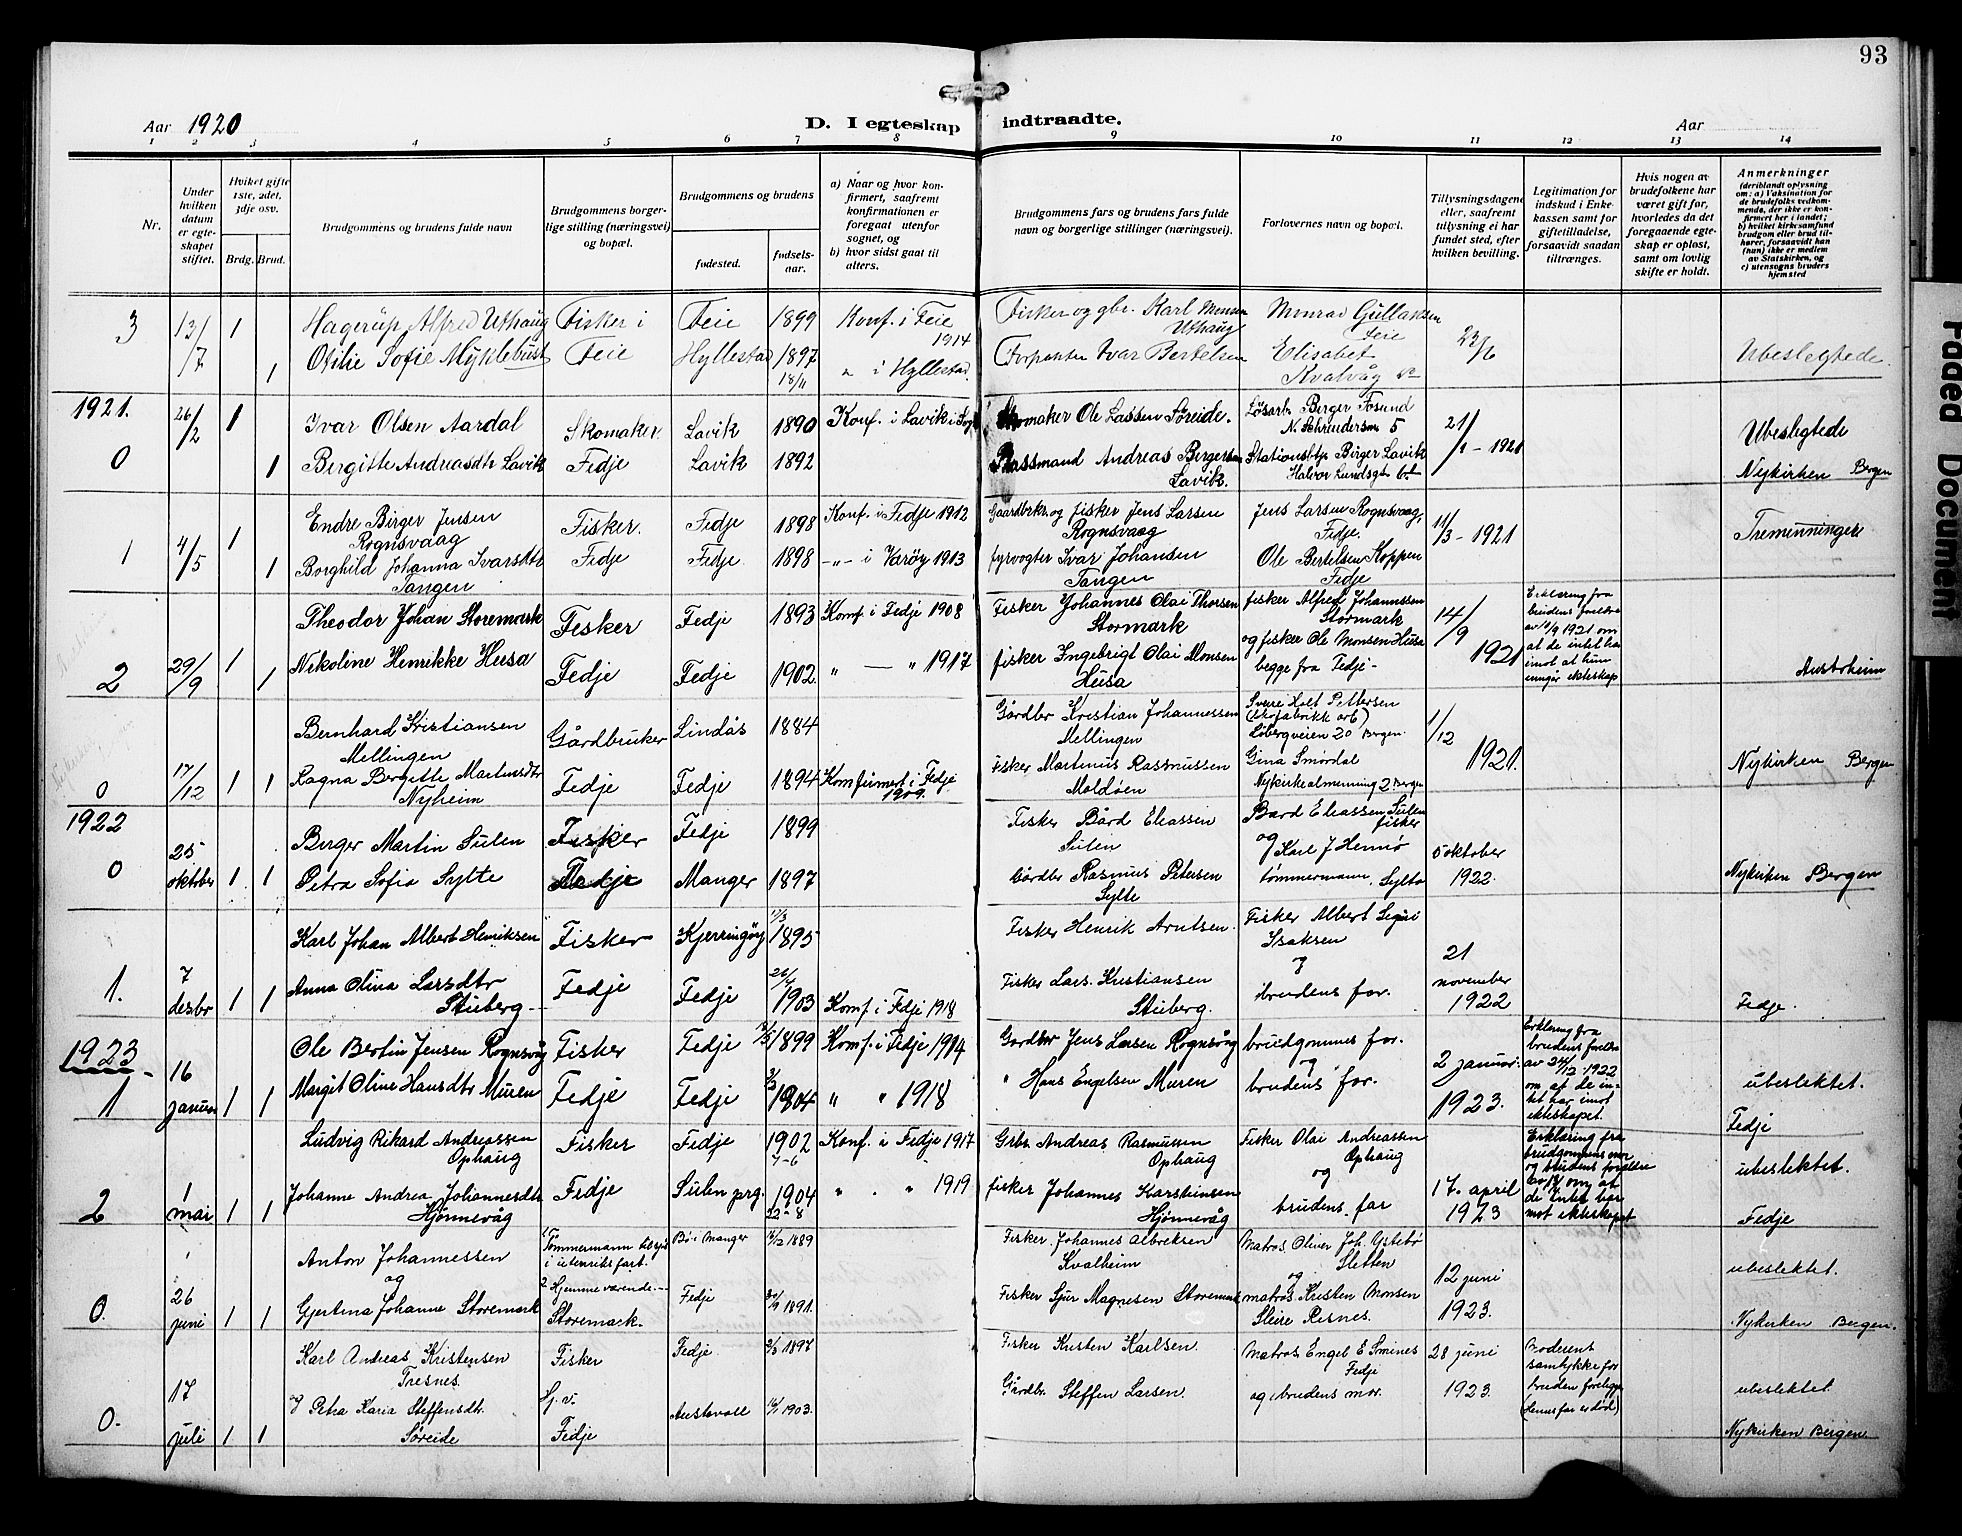 93
Aar 1920
D. I egteskap indtraadte.
Aar
1 2 3 4 5 6 7 8 9 10 11 12 13 14
Nr.
Under hvilken datum er egteskapet stiftet.
Hviket gifte 1ste, 2det, 3dje osv.
Brdg. Brud.
Brudgommens og brudens fulde navn
Brudgommens borgerlige stilling (næringsvei) og bopæl.
Brudgommens og brudens
fødested.
fødselsaar.
a) Naar og hvor konfirmert, saafremt konfirmationen er foregaat utenfor sognet, og
b) hvor sidst gaat til alters.
Brudgommens fars og brudens fars fulde navn og borgerlige stillinger (næringsvei).
Forlovernes navn og bopæl.
Tillysningsdagene eller, saafremt tillysning ei har fundet sted, efter hvilken bevilling.
Legitimation for indskud i Enkekassen samt for giftetilladelse, forsaavidt saadan tiltrænges.
Hvis nogen av brudefolkene har været gift før, hvorledes da det foregaaende egteskap er opløst, samt om lovlig skifte er holdt.
Anmerkninger
(deriblandt oplysning om: a) Vaksination for de brudefolks vedkommende, der ikke er konfirmert her i landet; b) hvilket kirkesamfund brudgom eller brud tilhører, forsaavidt han (hun) ikke er medlem av Statskirken, og c) utensogns bruders hjemsted
3 13/7 1 Hagerup Alfred Uthaug Fisker i Feie 1899 Konf. i Feie 1914 Fisker og gbr. Karl Monsen Uthaug Monrad Gullaksen Feie 23/6
1 Otilie Sofie Myklebust Feie Hyllestad 1897 18/11 " i Hyllestad Forpakter Ivar Bertelsen Elisabet Kvalvåg Ubeslegtede
1921.
0 26/2 1 Ivar Olsen Aardal Skomaker. Lavik 1890 Konf. i Lavik i Sogn Skomaker Ole Lassen Søreide. Løsarb. Berger Fosund 21/1 - 1921 Ubeslegtede
1 Bergitte Andreasdtr Lavik Fedje Lavik 1892 Andreas Birgersen Lavik. Birger Lavik Nykirken Bergen
1 4/5 1 Endre Birger Jensen Rognsvaag Fisker. Fedje 1898 Konf. i Fedje 1912 Gaardbrkr. og fisker Jens Larsen Rognsvaag Jens Larsen Rognsvaag, Fedje. 11/3 - 1921 Tremenninger
1 Borghild Johanna Ivarsdtr Tangen Fedje Fedje 1898 -"- i Varøy 1913 fyrvogter Ivar Johansen Tangen Ole Bertelsen Koppen Fedje
2 29/9 1 Theodor Johan Storemark Fisker Fedje 1893 Konf. i Fedje 1908 Fisker Johannes Olai Thorsen Stormark fisker Alfred Johannssen Stormark 14/9 1921 Erklæring fra brudens foreldre av 10/9 1921 om at de intet har imot at hun inngår ekteskap
1 Nikoline Henrikke Husa Fedje Fedje 1902 " — " 1917 fisker Ingebrigt Olai Monsen Husa og fisker Ole Monsen Husa begge fra Fedje - Austrheim
0 17/12 1 1 Bernhard Kristiansen Mellingen Gårdbruker Lindås 1884 Gårdbr Kristian Johannessen Mellingen Sverre Holt Pettersen (Skofabrikk arb) Løbergveien 20 Bergen. 1/12 1921.
Ragna Bergitte Martinsdtr Nyheim Fedje Fedje 1894 Konfirmert i Fedje 1909. Fisker Martinus Rasmussen Moldøen Gina Smørdal Nykirkealmenning 2 Bergen Nykirken Bergen
1922
0 25 oktober 1 1 Berger Martin Sulen Fisker Fedje 1899 Fisker Bård Eliassen Sulen Bård Eliassen Sulen fisker 5 oktober 1922.
Petra Sofia Sylte Fedje Manger 1897 Gårdbr Rasmus Petersen Sylte og Karl J Hennø tømmermann, Sylta Nykirken Bergen
1. 7 desbr 1 1 Karl Johan Albert Henriksen Fisker Kjerringøy 11/3 1895 Fisker Henrik Arntsen. Fisker Albert Isaksen 21 november 1922
Anna Olina Larsdtr Stuberg Fedje Fedje 26/4 1903 Konf. i Fedje 1918 Fisker Lars Kristiansen Stuberg. og brudens far. Fedje.
1923
1 16 januar 1 1 Ole Bertin Jensen Rognsvåg Fisker Fedje 1899 Konf. i Fedje 1914 Gardbr Jens Larsen Rognsvåg brudgommens far. 2 januar. 1923. Erklæring fra brudens foreldre av 24/12 1922 om at de intet har imot ekteskapet. ubeslektet.
Margit Oline Hansdtr Muren Fedje Fedje 1904 " " 1918 " Hans Engelsen Muren og brudens far. Fedje
2 1 mai 1 1 Ludvig Rikard Andreassen Ophaug Fisker Fedje 1902 7-6 Konf. i Fedje 1917 Grbr. Andreas Rasmussen Ophaug Fisker Olai Andreassen Ophaug 17. april 1923 Erklæring fra brudgommens mor og brudens forældre om at de intet har mot ekteskapet ubeslektet.
Johanne Andrea Johannesdtr Hjønnevåg Fedje Sulen prg. 1904 22-8 " . " 1919 fisker Johannes Karstensen Hjønnevåg og brudens far Fedje
0. 26 juni 1 1 Anton Johannessen 1 Tømmermann tilsjøs i utenriksfart. Bø i Manger 14/12 1889 Fisker Johannes Albreksen Kvalheim Matros. Oliver Joh. Ystebø Sletten 12 juni 1923. ubeslektet.
og Gjertina Johanne Storemark 2 Hjemmeværende. Storemark. Fedje 30/9 1891. Fisker Sjur Magnesen Storemark og matros. Kristen Monsen Nykirken Bergen.
0. 17 juli 1 1 Karl Andreas Kristensen Tresnes. Fisker Fedje. 2/5 1897 Fisker Kristen Karlsen. Matros. Engel E Fedje 28 juni 1923. Moderens samtykke for bruden foreligger (Hennes far er død) ubeslektet
og Petra Karia Steffensdtr. Søreide Hj. v. Fedje Austevoll 16/1 1903. Gårdbr. Steffen Larsen. og brudens mor. Nykirken Bergen.
Faded Document